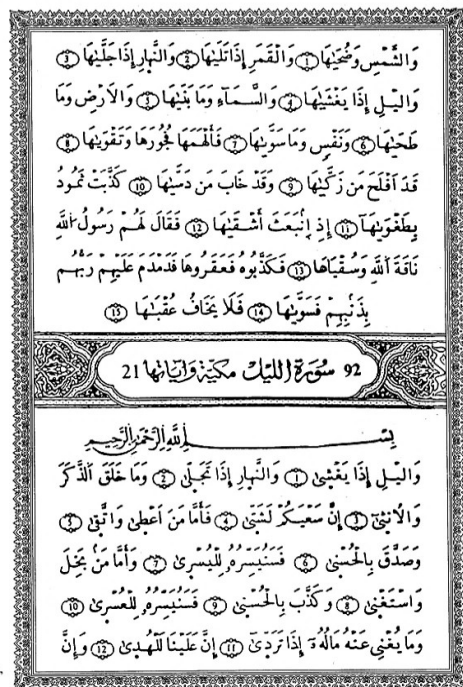 وَالشَّمْسِ وَضُحَىٰهَا 1 وَالْقَمَرِ إِذَا تَلَىٰهَا 2 وَالنَّهَارِ إِذَا جَلَّىٰهَا 3
وَالَيْلِ إِذَا يَغْشَىٰهَا 4 وَالسَّمَآءِ وَمَا بَنَىٰهَا 5 وَالَارْضِ وَمَا
طَحَىٰهَا 6 وَنَفْسٍ وَمَا سَوَّىٰهَا 7 فَأَلْهَمَهَا فُجُورَهَا وَتَقْوَىٰهَا 8
قَدَ اَفْلَحَ مَن زَكَّىٰهَا 9 وَقَدْ خَابَ مَن دَسَّىٰهَا 10 كَذَّبَتْ ثَمُودُ
بِطَغْوَىٰهَآ 11 إِذِ اِنۢبَعَثَ أَشْقَىٰهَا 12 فَقَالَ لَهُمْ رَسُولُ اُللَّهِ
نَاقَةَ اَللَّهِ وَسُقْيَاهَا 13 فَكَذَّبُوهُ فَعَقَرُوهَا فَدَمْدَمَ عَلَيْهِمْ رَبُّهُم
بِذَنۢبِهِمْ فَسَوَّىٰهَا 14 فَلَا يَخَافُ عُقْبَٰهَا 15
92 سُورَة الليْل مكيّة وَاياتها 21
بِسْمِ اِللَّهِ اِلرَّحْمَٰنِ اِلرَّحِيمِ
وَالَيْلِ إِذَا يَغْشَىٰ 1 وَالنَّهَارِ إِذَا تَجَلَّىٰ 2 وَمَا خَلَقَ اَلذَّكَرَ
وَالُانثَىٰٓ 3 إِنَّ سَعْيَكُمْ لَشَتَّىٰ 4 فَأَمَّا مَنَ اَعْطَىٰ وَاتَّقَىٰ 5
وَصَدَّقَ بِالْحُسْنَىٰ 6 فَسَنُيَسِّرُهُۥ لِلْيُسْرَىٰ 7 وَأَمَّا مَنۢ بَخِلَ
وَاسْتَغْنَىٰ 8 وَكَذَّبَ بِالْحُسْنَىٰ 9 فَسَنُيَسِّرُهُۥ لِلْعُسْرَىٰ 10
وَمَا يُغْنِي عَنْهُ مَالُهُۥٓ إِذَا تَرَدَّىٰٓ 11 إِنَّ عَلَيْنَا لَلْهُدَىٰ 12 وَإِنَّ